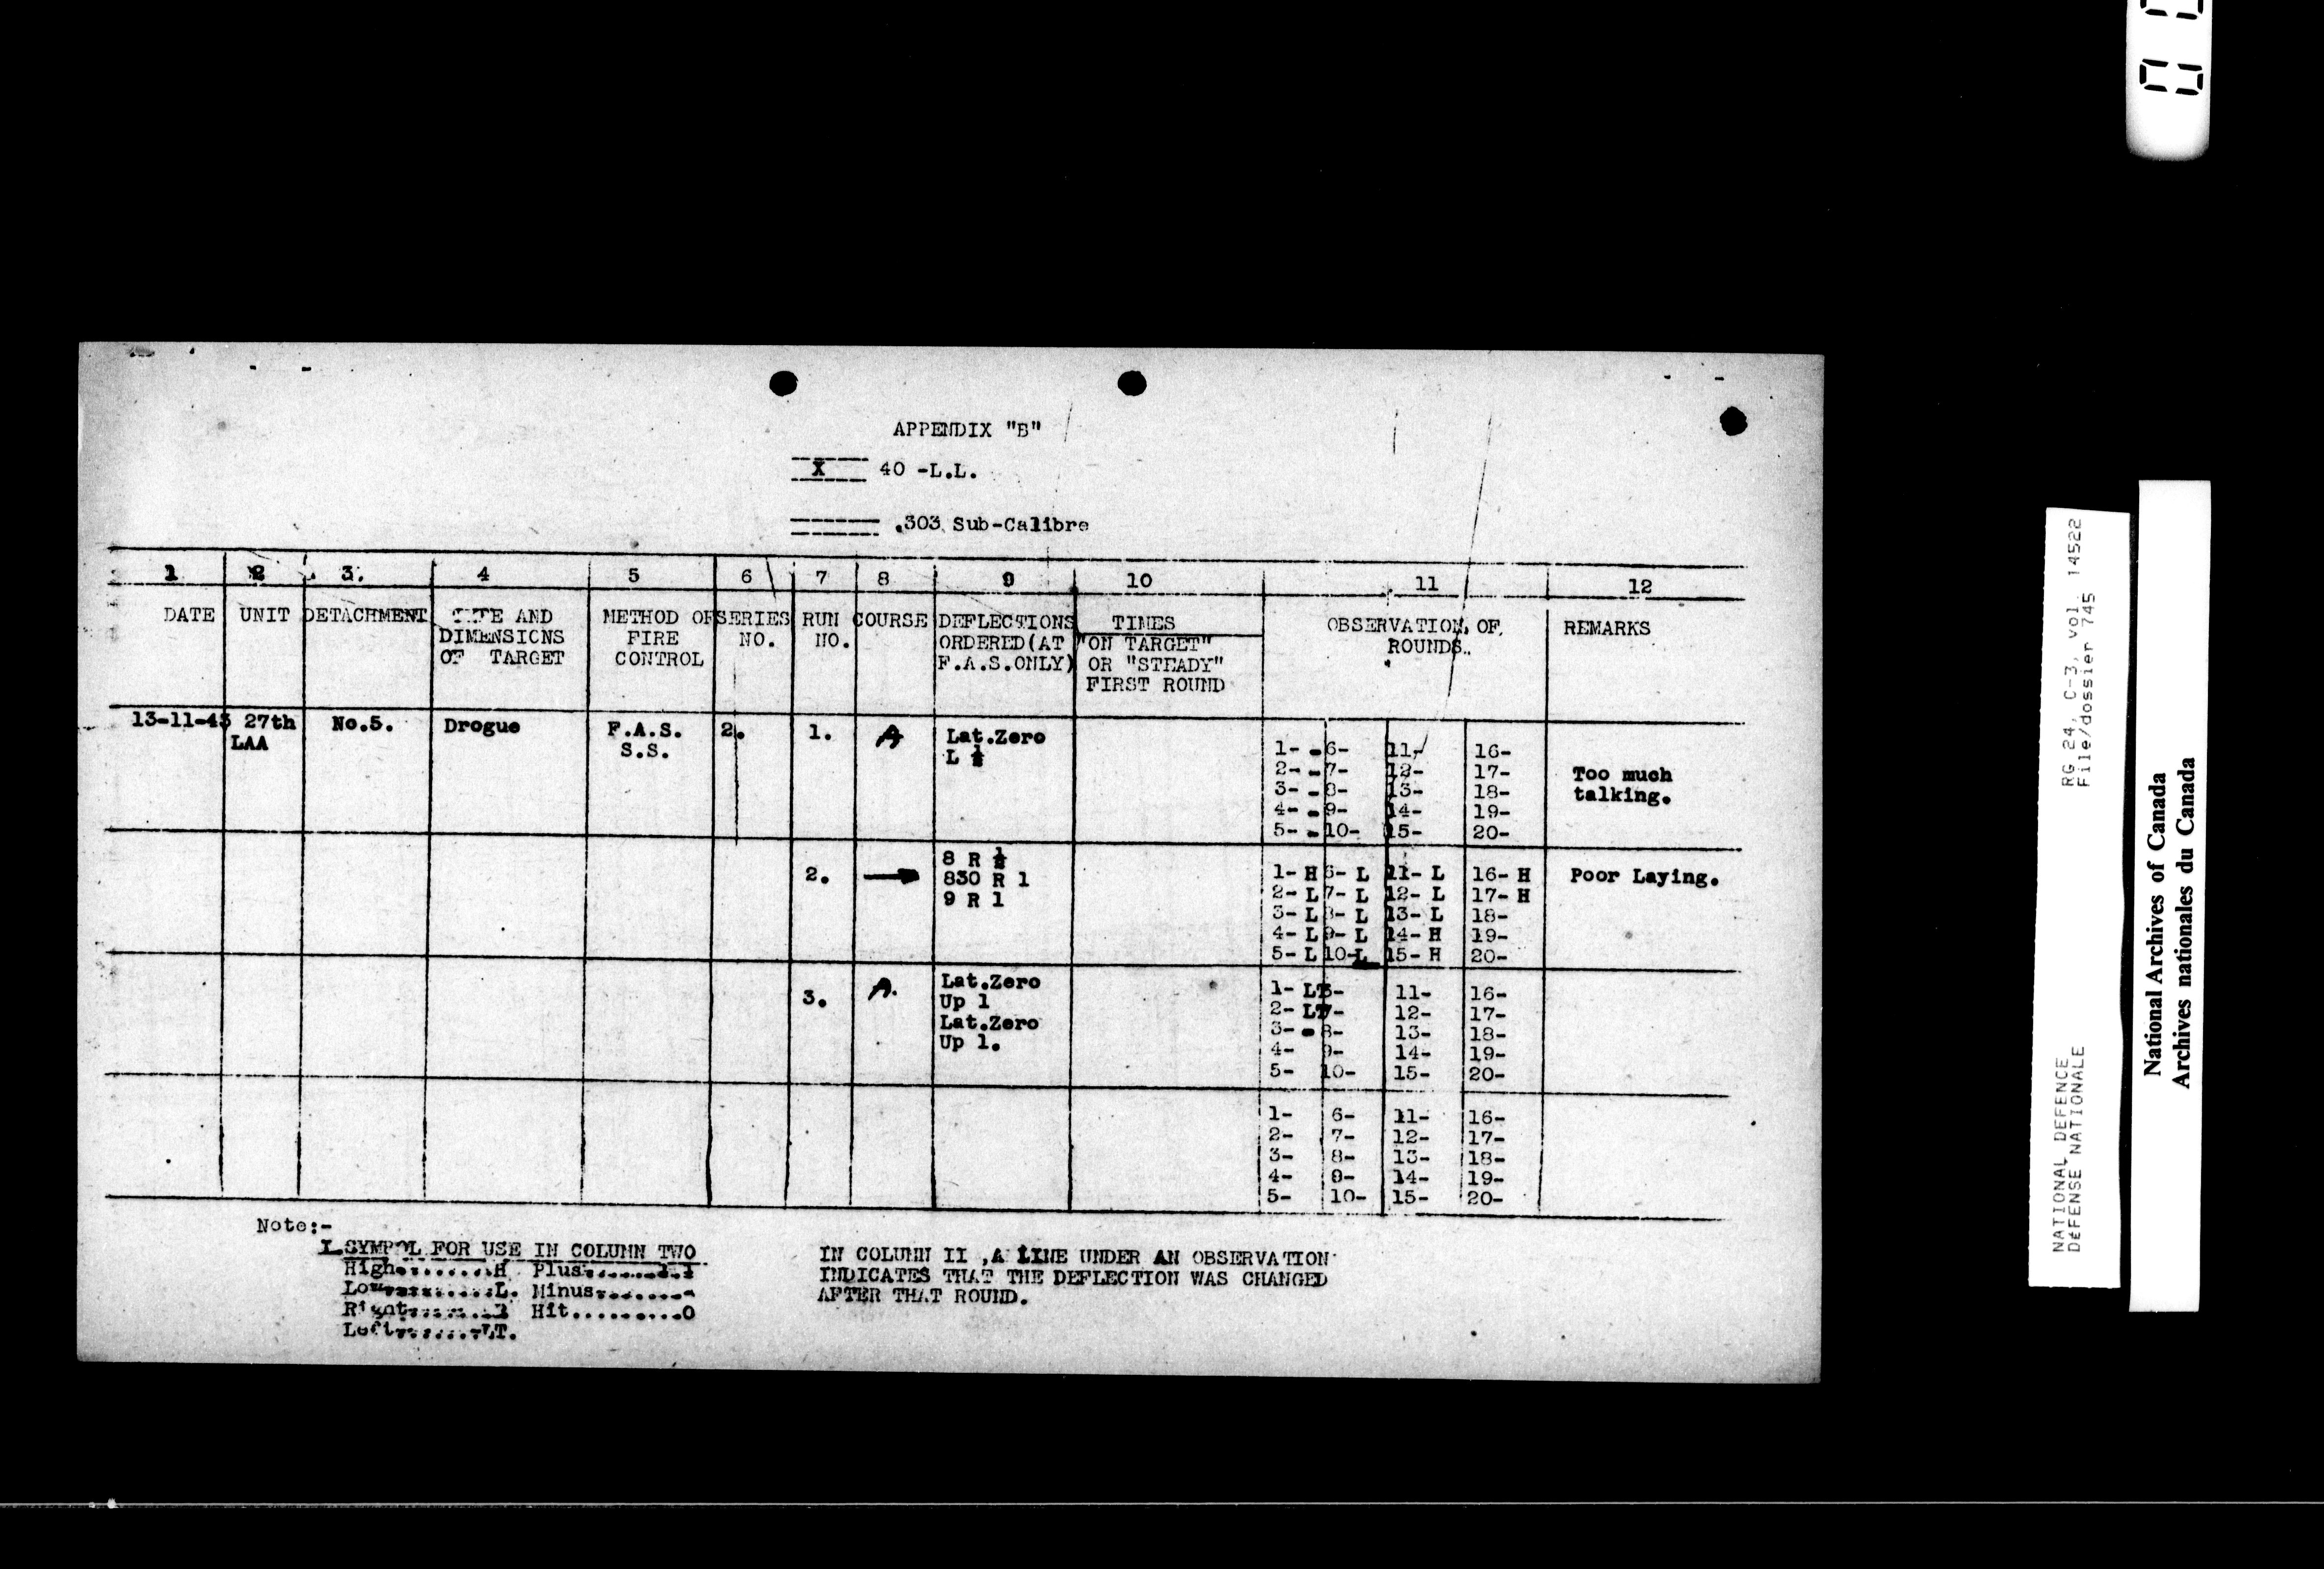 APPENDIX "B"
X 40 -L.L.
.303 Sub-Calibre
1 2 3. 4 5 6 7 8 9 10 11 12
DATE UNIT DETACHMENT AND DIMENSIONS OF TARGET METHOD OF FIRE CONTROL SERIES NO. RUN NO. COURSE DEFLECTIONS ORDERED(AT F.A.S.ONLY) TIMES "ON TARGET" OR "STEADY" FIRST ROUND OBSERVATION OF ROUNDS. REMARKS
13-11-43 27th LAA No.5. Drogue F.A.S. S.S. 2. 1. A Lat.Zero L ½
1- - 6- 11- 16-
2- - 7- 12- 17-
3- - 8- 13- 18-
4- - 9- 14- 19-
5- - 10- 15- 20-
Too much
talking.
2. → 8 R ½
830 R 1
9 R 1
1- H 6- L 11- L 16- H
2- L 7- L 12- L 17- H
3- L 8- L 13- L 18-
4- L 9- L 14- H 19-
5- L 10-L 15- H 20-
Poor Laying.
3. A. Lat.Zero
Up 1
Lat.Zero
Up 1.
1- LT 6- 11- 16-
2- LT 7- 12- 17-
3- - 8- 13- 18-
4- 9- 14- 19-
5- 10- 15- 20-
1- 6- 11- 16-
2- 7- 12- 17-
3- 8- 13- 18-
4- 9- 14- 19-
5- 10- 15- 20-
Note:-
1.SYMBOL FOR USE IN COLUMN TWO
High.......H Plus
Low.......L. Minus.......-
Right....... Hit..........O
Left.......LT.
IN COLUMN II ,A LINE UNDER AN OBSERVATION
INDICATES THAT THE DEFLECTION WAS CHANGED
AFTER THAT ROUND.
RG 24, C-3, vol. 14522
File/dossier 745
NATIONAL DEFENCE
DÉFENSE NATIONALE
National Archives of Canada
Archives nationales du Canada